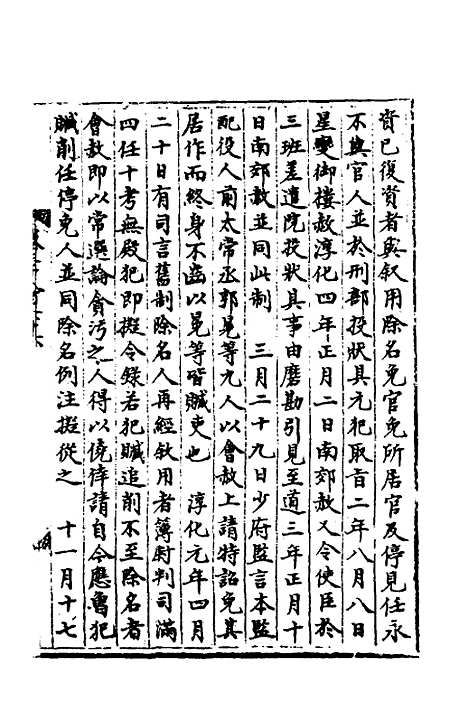 資已復資者與叙用除名免官免所居官及停見任永
不與官人並於刑部投狀具元犯取旨二年八月八日
星變御樓赦淳化四年正月二日南郊赦又令使臣於
三班差遣院投狀具事由磨勘引見至道三年正月十
日南郊赦並同此制 三月二十九日少府監言本監
配役人前太常丞郭晃等九人以會赦上請特詔免其
居作而終身不齒以晃等皆贓吏也 淳化元年四月
二十日有司言舊制除名人再經叙用者簿尉判司滿
四任十考無殿犯即擬令錄若犯贓追削不至除名者
會赦即以常選論貪污之人得以僥倖請自今應曾犯
贓削任停免人並同除名例注擬從之 十一月十七